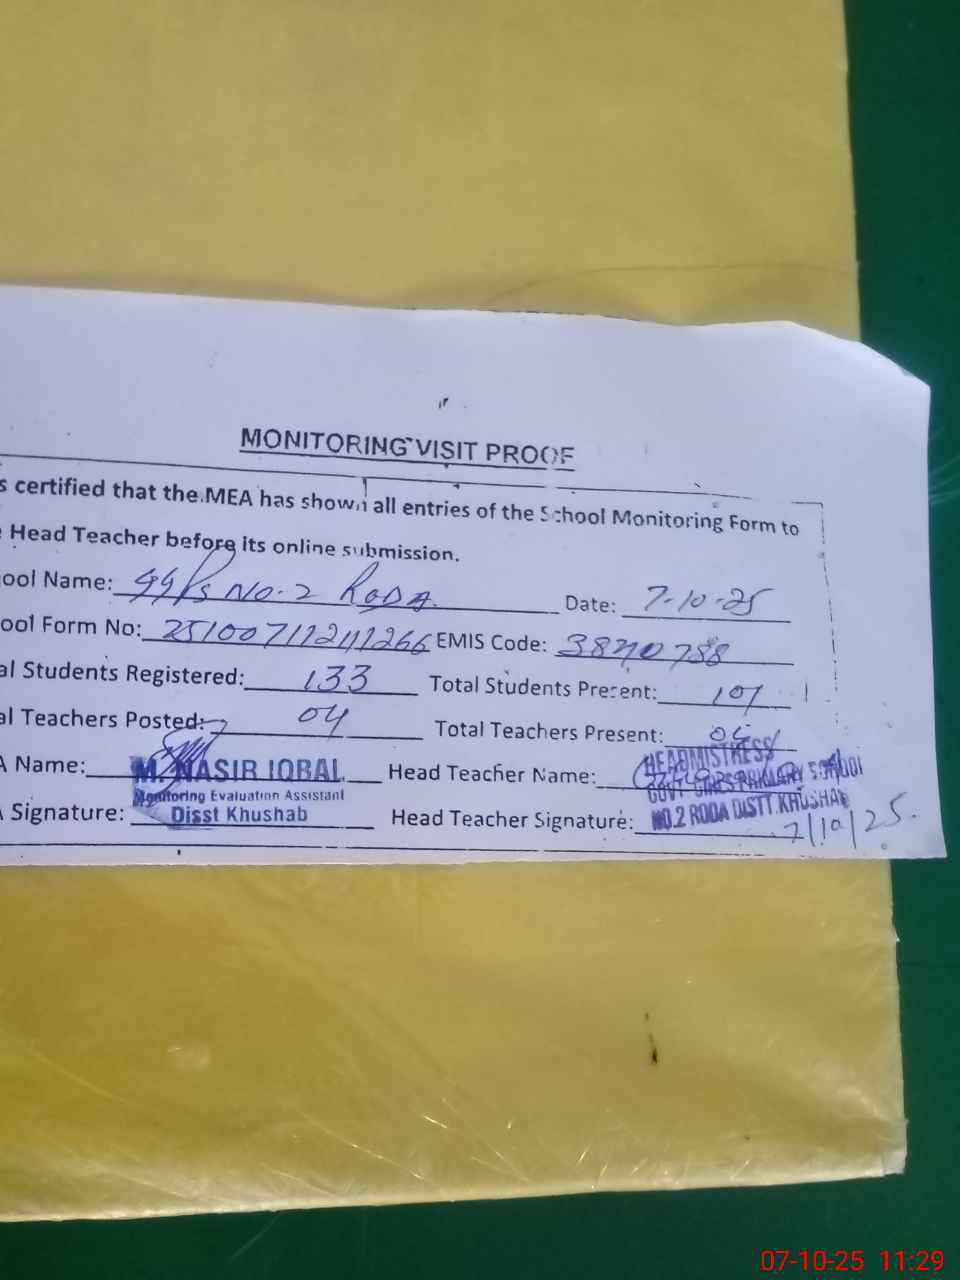 MONITORING VISIT PROOF
s certified that the MEA has shown all entries of the School Monitoring Form to
Head Teacher before its online submission.
ool Name: GGPS No. 2 RODA Date: 7-10-25
ool Form No: EMIS Code:
al Students Registered: 133 Total Students Present: 107
al Teachers Posted: 04 Total Teachers Present: 04
A Name: M. NASIR IQBAL Head Teacher Name: HEADMISTRESS
Monitoring Evaluation Assistant GOVT GIRLS PRIMARY SCHOOL
A Signature: Disst Khushab Head Teacher Signature: NO.2 RODA DISTT.KHUSHAB
7/10/25.
07-10-25 11:29